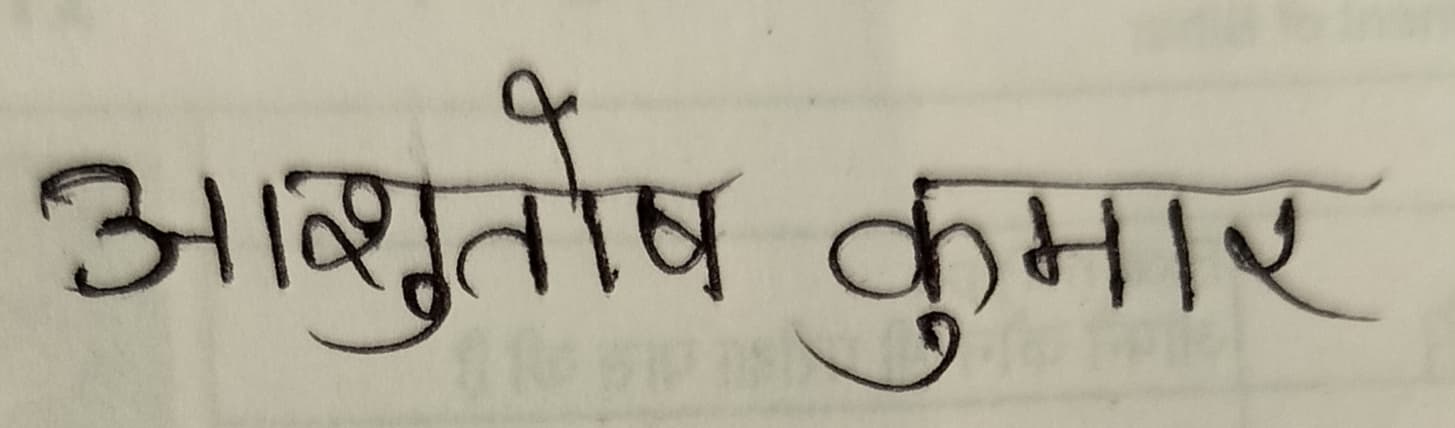 आशुतोष कुमार